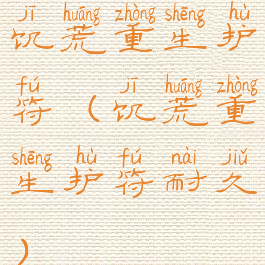 jī huāng zhòng shēng hù
饥荒重生护
fú jī huāng zhòng
符（饥荒重
shēng hù fú nài jiǔ
生护符耐久
）